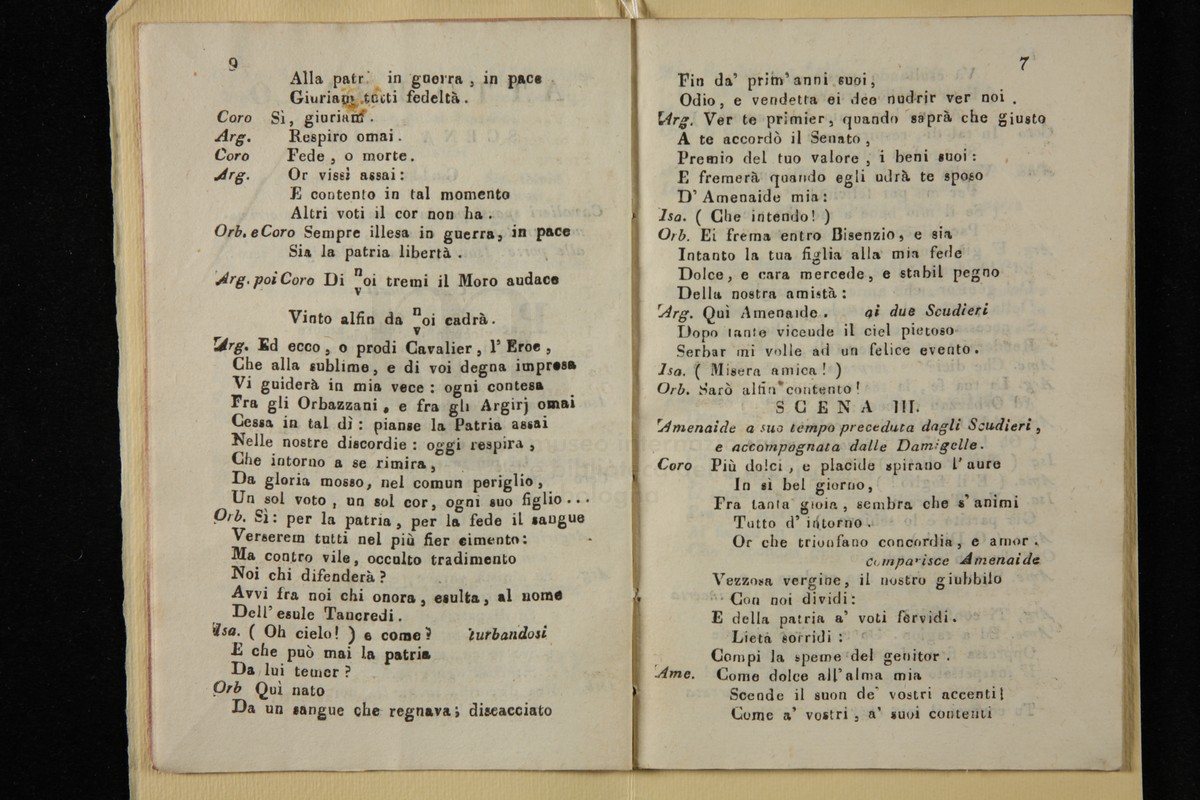 9
Alla patr in guerra , in pace
Giuriam tutti fedeltà .
Coro Sì, giuriam .
Arg. Respiro omai .
Coro Fede , o morte .
Arg. Or vissi assai :
E contento in tal momento
Altri voti il cor non ha .
Orb. e Coro Sempre illesa in guerra, in pace
Sia la patria libertà .
Arg. poi Coro Di n/v oi tremi il Moro audace
Vinto alfin da n/v oi cadrà .
Arg. Ed ecco , o prodi Cavalier , l' Eroe ,
Che alla sublime, e di voi degna impresa
Vi guiderà in mia vece : ogni contesa
Fra gli Orbazzani , e fra gli Argirj omai
Cessa in tal dì : pianse la Patria assai
Nelle nostre discordie : oggi respira ,
Che intorno a se rimira ,
Da gloria mosso, nel comun periglio ,
Un sol voto , un sol cor, ogni suo figlio ...
Orb. Sì : per la patria , per la fede il sangue
Verserem tutti nel più fier cimento :
Ma contro vile, occulto tradimento
Noi chi difenderà ?
Avvi fra noi chi onora , esulta, al nome
Dell' esule Tancredi .
Isa. ( Oh cielo ! ) e come ? turbandosi
E che può mai la patria
Da lui temer ?
Orb Quì nato
Da un sangue che regnava ; discacciato
7
Fin da' prim' anni suoi ,
Odio , e vendetta ei dee nudrir ver noi .
Arg. Ver te primier, quando saprà che giusto
A te accordò il Senato ,
Premio del tuo valore , i beni suoi :
E fremerà quando egli udrà te sposo
D' Amenaide mia :
Isa. ( Che intendo ! )
Orb. Ei frema entro Bisenzio , e sia
Intanto la tua figlia alla mia fede
Dolce , e cara mercede , e stabil pegno
Della nostra amistà :
Arg. Quì Amenaide . ai due Scudieri
Dopo tante vicende il ciel pietoso
Serbar mi volle ad un felice evento .
Isa. ( Misera amica ! )
Orb. Sarò alfin contento !
SCENA III.
Amenaide a suo tempo preceduta dagli Scudieri ,
e accompagnata dalle Damigelle .
Coro Più dolci , e placide spirano l' aure
In sì bel giorno,
Fra tanta gioia , sembra che s' animi
Tutto d' intorno .
Or che trionfano concordia, e amor .
comparisce Amenaide
Vezzosa vergine, il nostro giubbilo
Con noi dividi :
E della patria a' voti fervidi .
Lieta sorridi :
Compi la speme del genitor .
Ame. Come dolce all' alma mia
Scende il suon de' vostri accenti !
Come a' vostri , a' suoi contenti